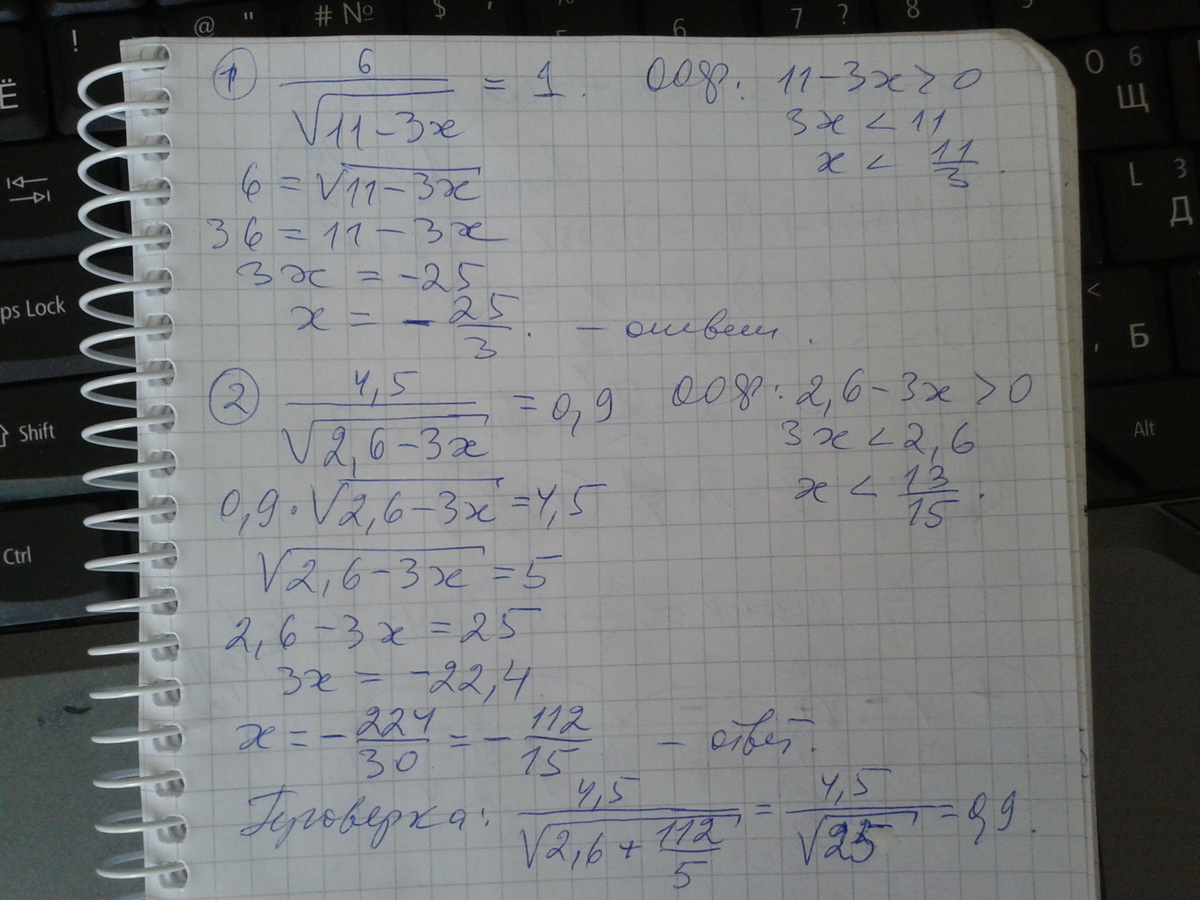 ① 6/√(11-3x) = 1. ООФ: 11-3x>0
3x < 11
x < 11/3.
6 = √(11-3x)
36 = 11-3x
3x = -25
x = -25/3. - ответ.
② 4,5/√(2,6-3x) = 0,9 ООФ: 2,6-3x>0
3x<2,6
x < 13/15.
0,9·√(2,6-3x)=4,5
√(2,6-3x)=5
2,6-3x=25
3x = -22,4
x = -224/30 = -112/15 - ответ.
Проверка: 4,5/√(2,6+112/5) = 4,5/√25 = 0,9.
Ё
!
@ "
# №
$ ;
%
5
6
7 ?
8
9
О 6
Щ
L 3
Д
<
, Б
Alt
ps Lock
Shift
Ctrl